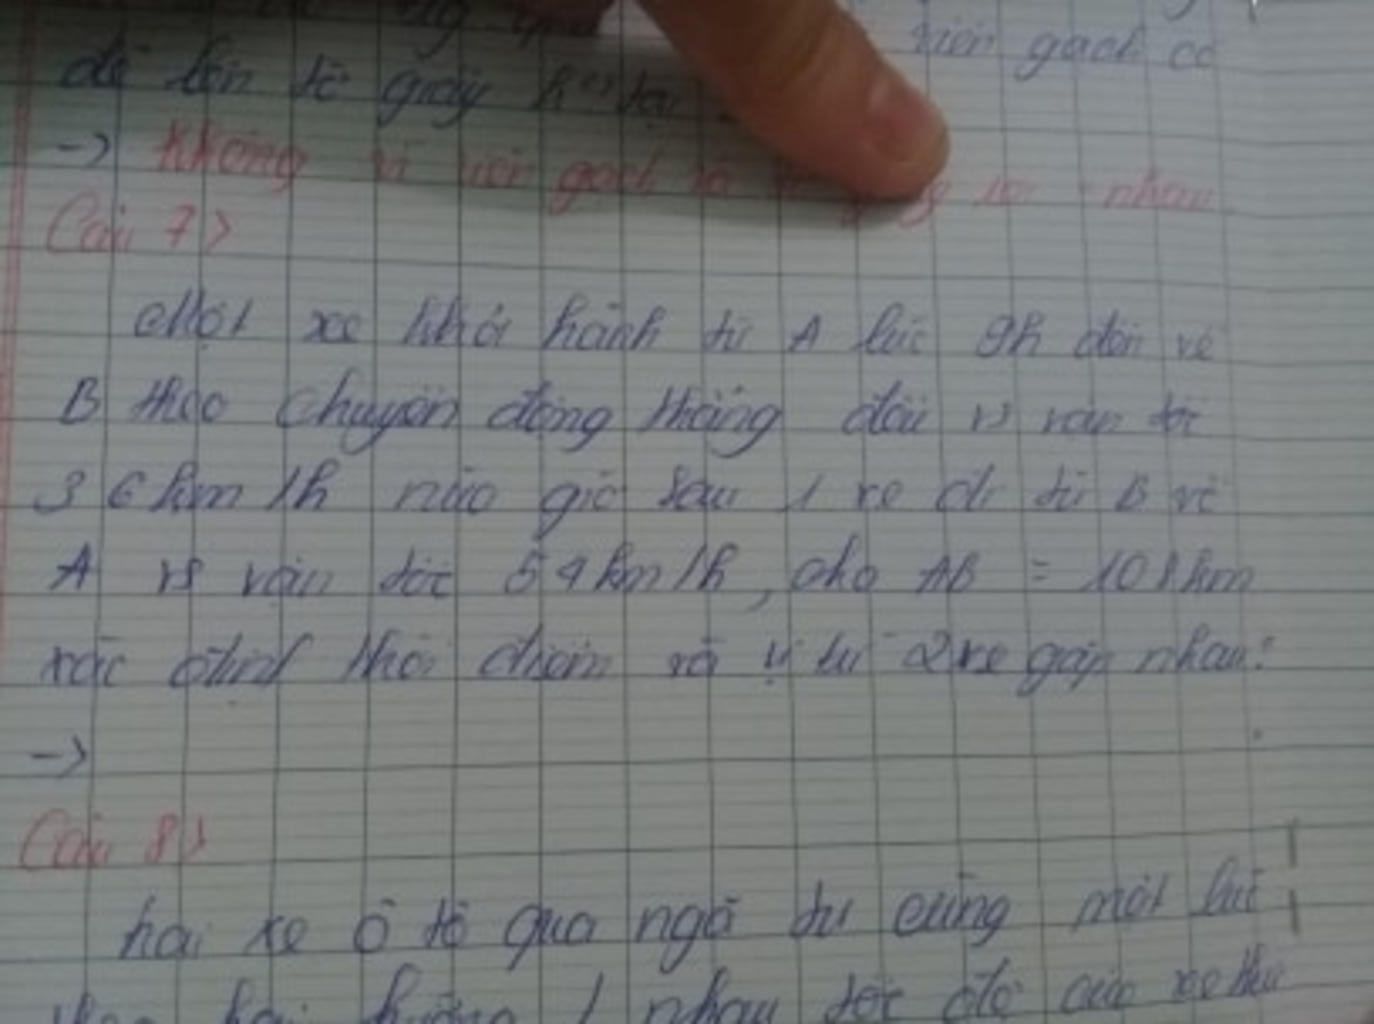 viên gạch có
để lên tờ giấy
-> Không vì viên gạch nhau
Câu 7>
Một xe khởi hành từ A lúc 9h đến về
B theo chuyển động thẳng đều vs vận tốc
36km/h nào giờ sau 1 xe đi từ B về
A vs vận tốc 54km/h, cho AB = 108km
xác định thời điểm và vị trí 2 xe gặp nhau?
->
Câu 8>
hai xe ô tô qua ngã tư cùng một lúc
theo hai hướng ⊥ nhau tốc độ các xe